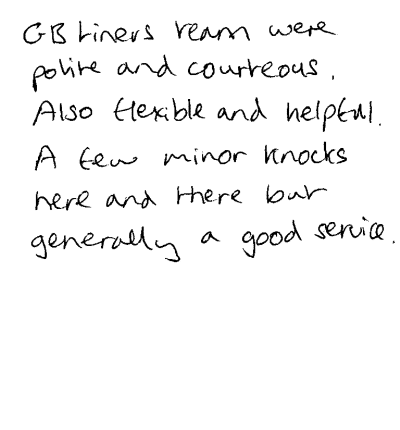 GB Liners team were
polite and courteous.
Also flexible and helpful.
A few minor knocks
here and there but
generally a good service.